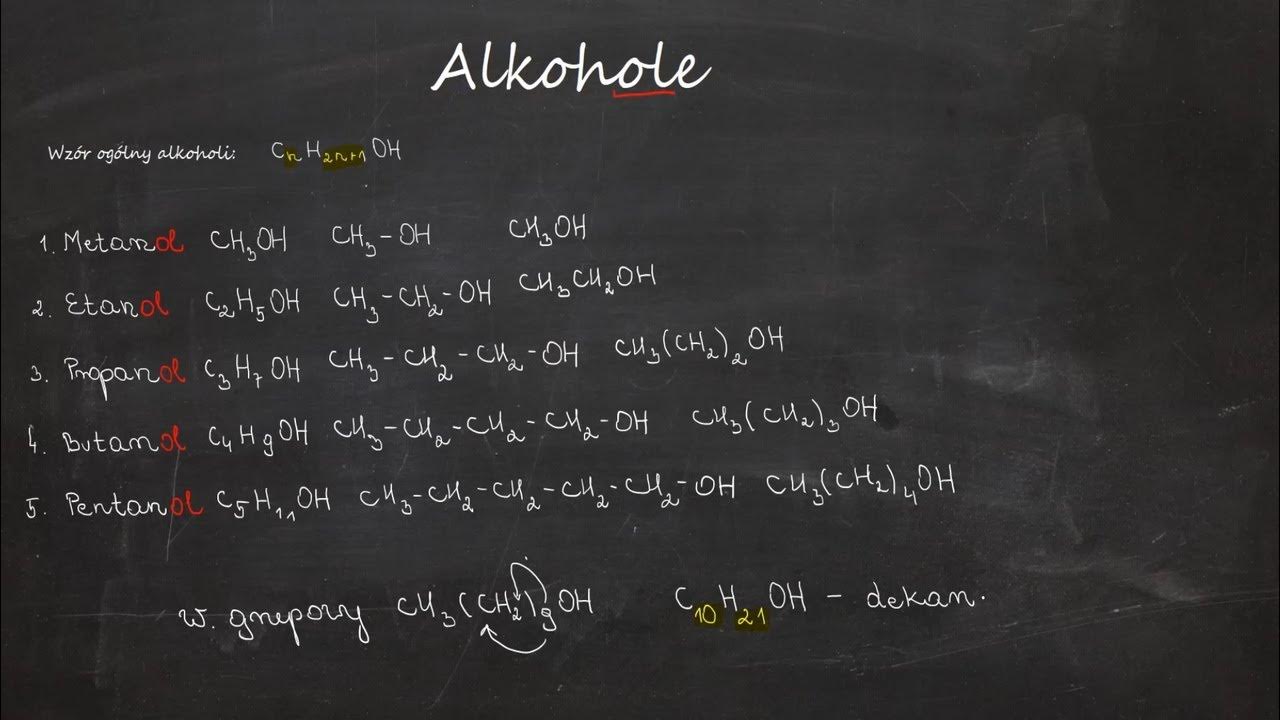 Alkohole
Wzór ogólny alkoholi: CnH2n+1OH
1. Metanol CH3OH CH3-OH CH3OH
2. Etanol C2H5OH CH3-CH2-OH CH3CH2OH
3. Propanol C3H7OH CH3-CH2-CH2-OH CH3(CH2)2OH
4. Butanol C4H9OH CH3-CH2-CH2-CH2-OH CH3(CH2)3OH
5. Pentanol C5H11OH CH3-CH2-CH2-CH2-CH2-OH CH3(CH2)4OH
w. grupowy CH3(CH2)9OH C10H21OH - dekan.